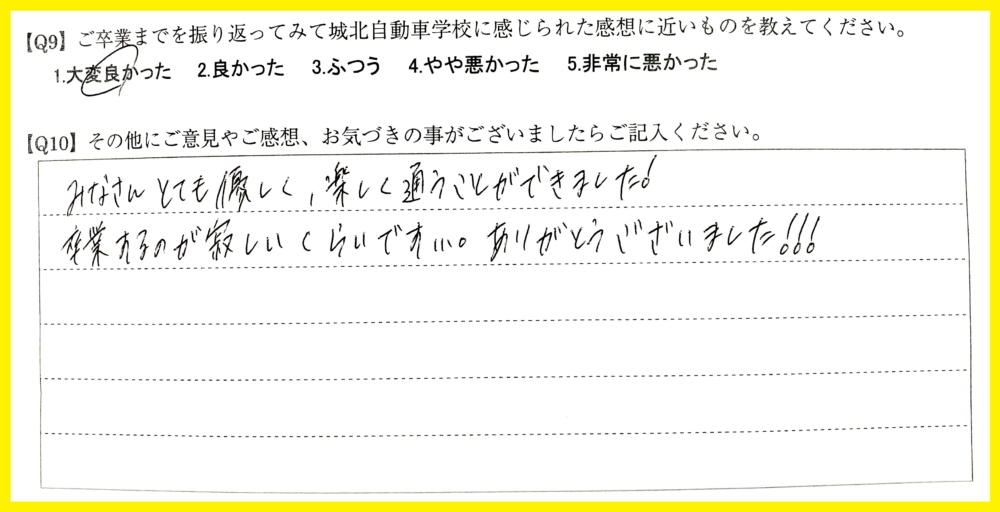 【Q9】ご卒業までを振り返ってみて城北自動車学校に感じられた感想に近いものを教えてください。
1.大変良かった 2.良かった 3.ふつう 4.やや悪かった 5.非常に悪かった
【Q10】その他にご意見やご感想、お気づきの事がございましたらご記入ください。
みなさんとても優しく、楽しく通うことができました!
卒業するのが寂しいくらいです…。ありがとうございました!!!